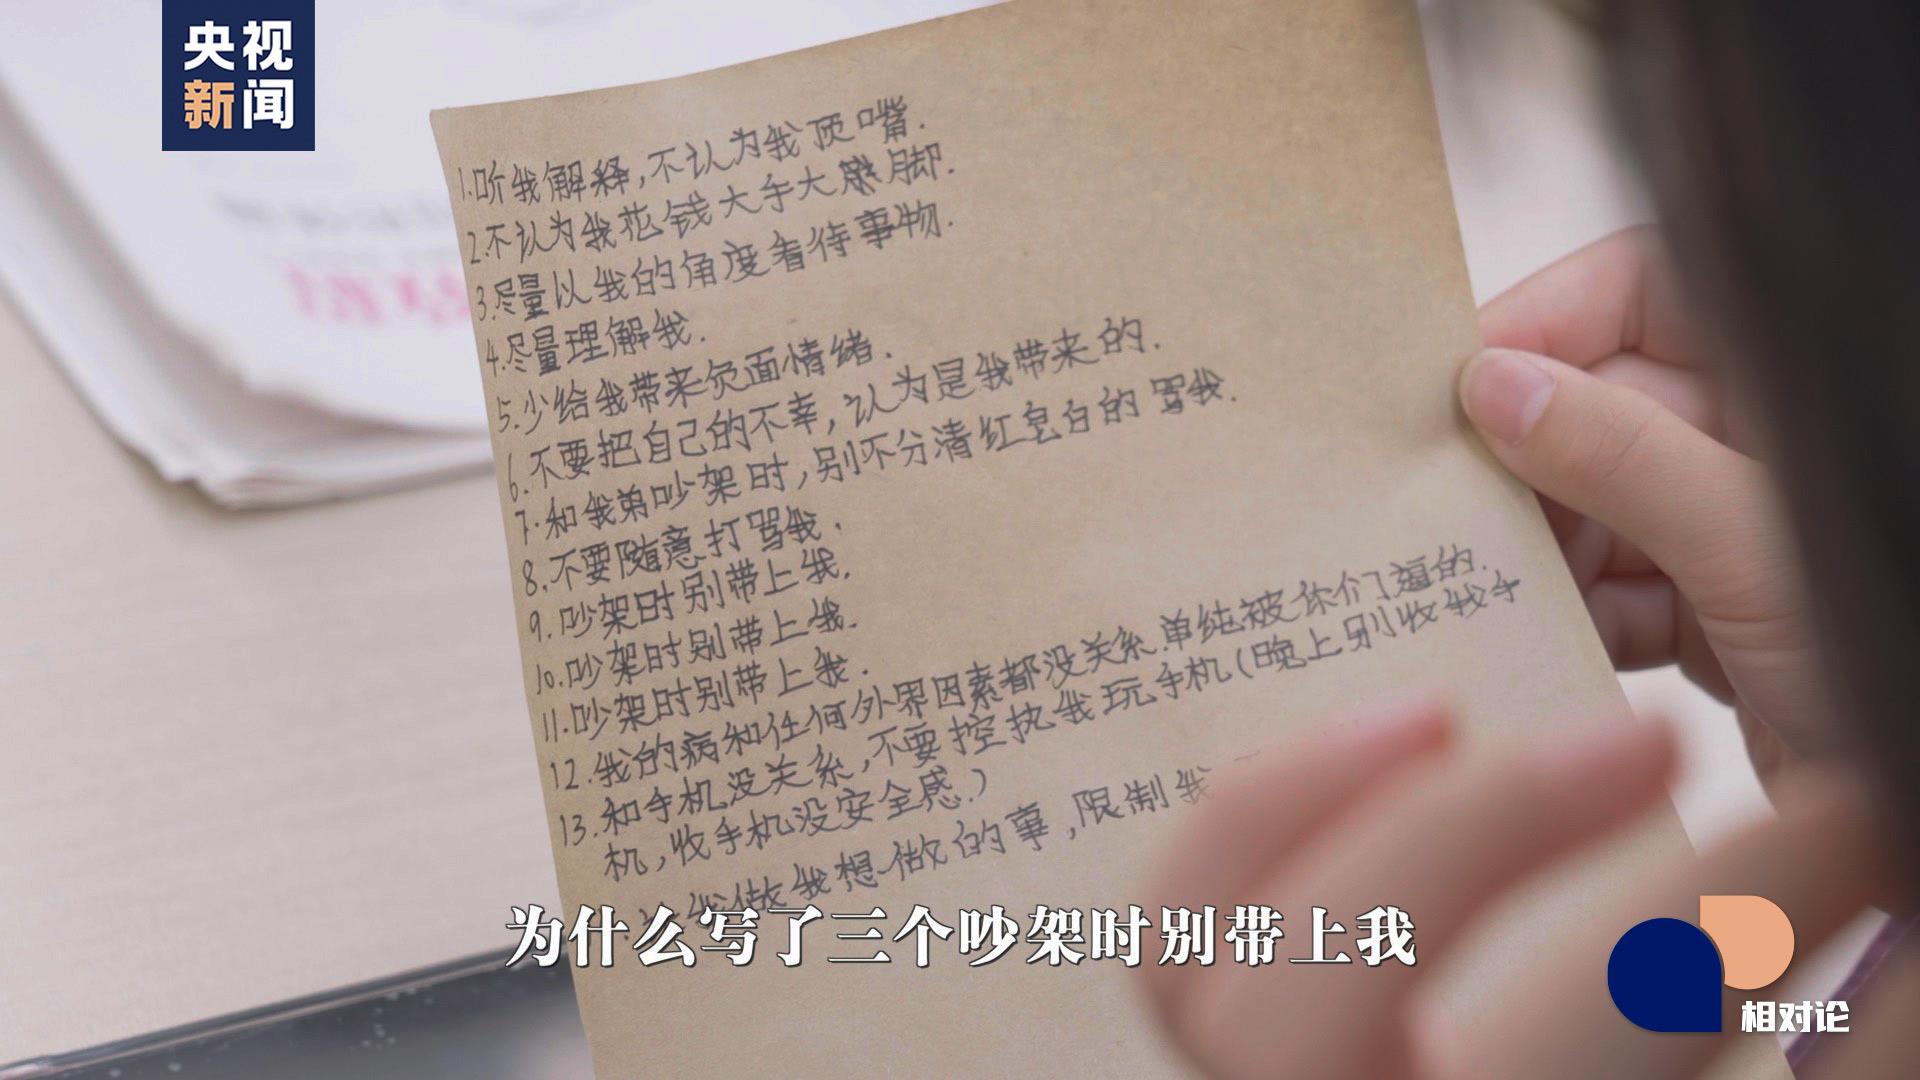 央视
新闻
1.听我解释,不认为我顶嘴.
2.不认为我花钱大手大脚.
3.尽量以我的角度看待事物.
4.尽量理解我.
5.少给我带来负面情绪.
6.不要把自己的不幸,认为是我带来的.
7.和我弟吵架时,别不分清红皂白的骂我.
8.不要随意打骂我.
9.吵架时别带上我.
10.吵架时别带上我.
11.吵架时别带上我.
12.我的病和任何外界因素都没关系.单纯被你们逼的.
13.和手机没关系,不要控执我玩手机(晚上别收我手
机,收手机没安全感.)
我做我想做的事,限制我
为什么写了三个吵架时别带上我
相对论